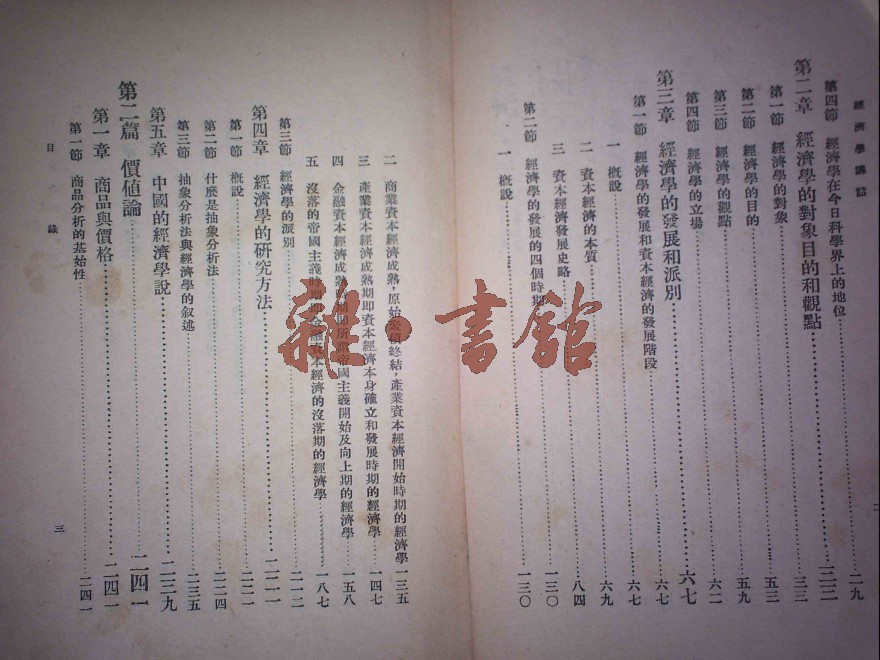 經濟學講話
第四節 經濟學在今日科學界上的地位……二九
第二章 經濟學的對象目的和觀點……三三
第一節 經濟學的對象……五三
第二節 經濟學的目的……五九
第三節 經濟學的觀點……六二
第四節 經濟學的立場……六七
第三章 經濟學的發展和派別……六七
第一節 經濟學的發展和資本經濟的發展階段……六七
一 概說……六九
二 資本經濟的本質……八四
三 資本經濟發展史略……一三〇
第二節 經濟學的發展的四個時期……一三〇
一 概說
二
二 商業資本經濟成熟,原始累積終結,產業資本經濟開始時期的經濟學 一三五
三 產業資本經濟成熟期即資本經濟本身確立和發展時期的經濟學 一四七
四 金融資本經濟成熟時期即所謂帝國主義開始及向上期的經濟學 一五八
五 沒落的帝國主義時期即金融資本經濟的沒落期的經濟學……一八七
第三節 經濟學的派別……二一二
第四章 經濟學的研究方法……二二一
第一節 概說……二二一
第二節 什麼是抽象分析法……二二四
第三節 抽象分析法與經濟學的叙述……二三五
第五章 中國的經濟學說……二三九
第二篇 價值論……二四一
第一章 商品與價格……二四一
第一節 商品分析的基始性……二四一
目錄
三
雜·書館